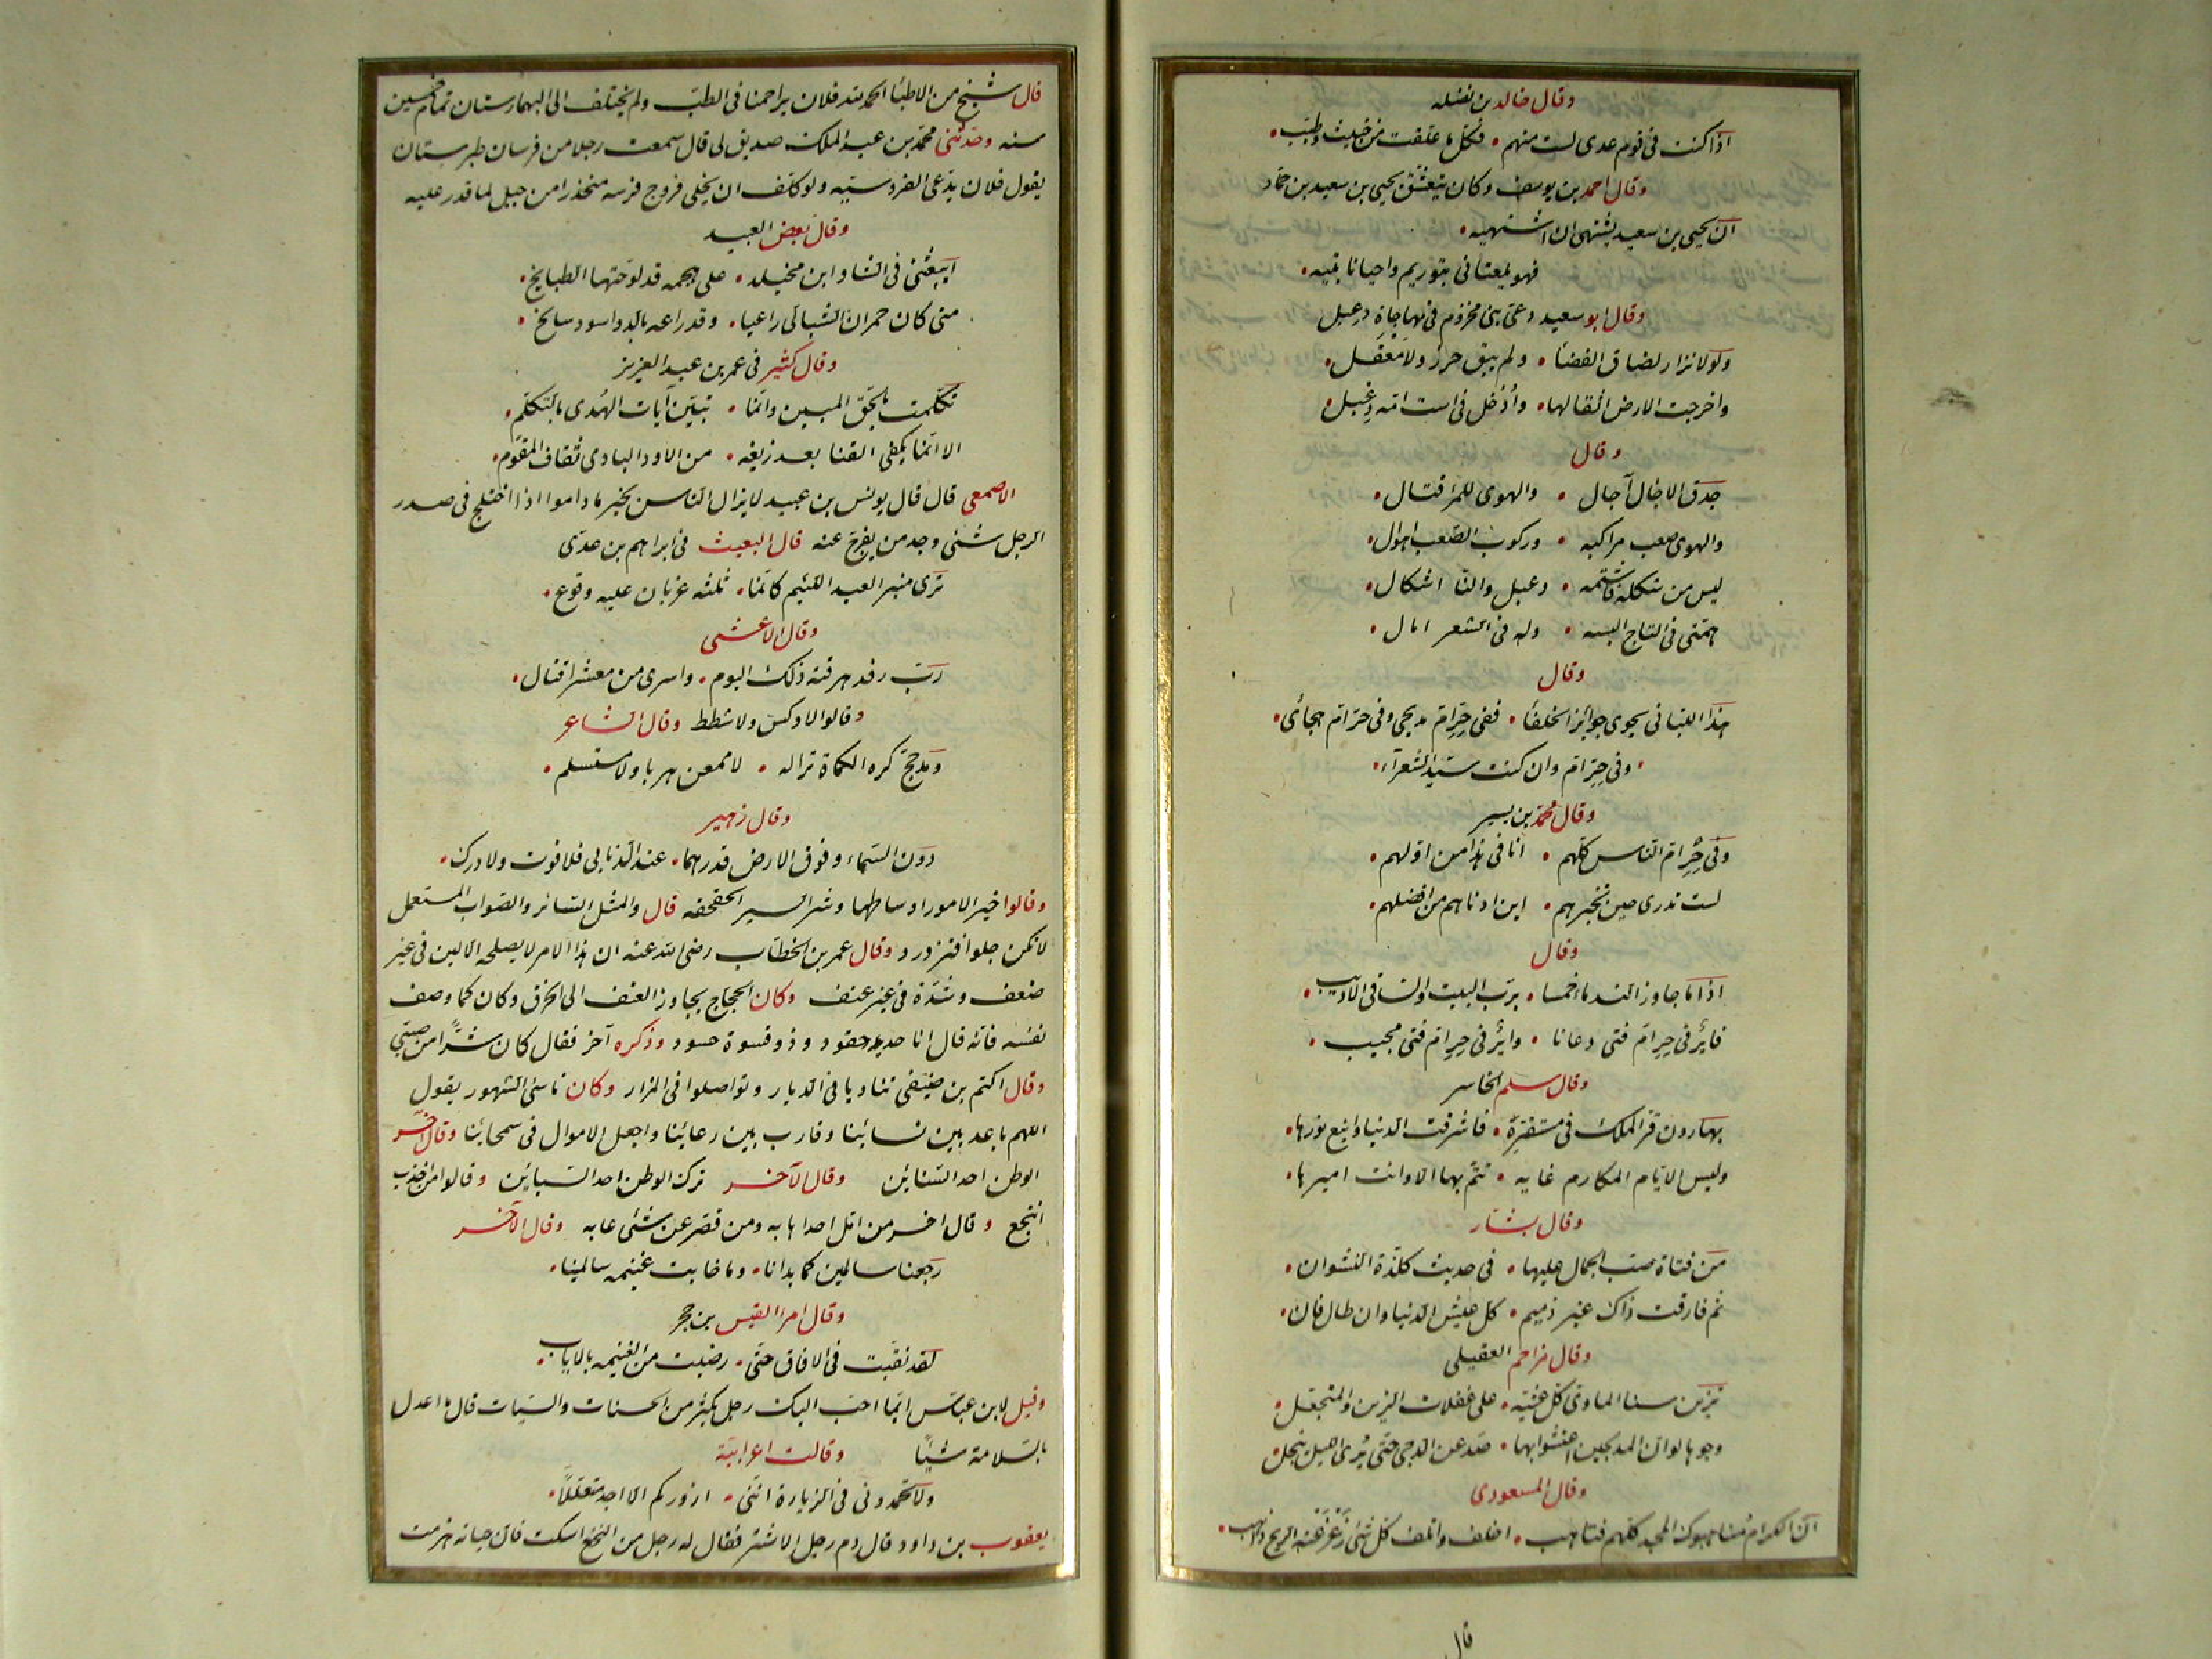 وقال خالد بن نضله
اذا كنت فى قوم عدى لست منهم • فكل ما علفت من خبيث وطيب •
وقال احمد بن يوسف وكان يتعشق يحيى بن سعيد بن حماد
ان يحيى بن سعيد يشتهى ان اشتهيه •
فهو يلقانى بتوريم واحيانا بتيه •
وقال ابو سعيد دعى بنى مخزوم فى مهاجاة دعبل
ولولا نزار لضاق الفضا • ولم يبق حرز ولا معقل •
واخرجت الارض اثقالها • وأدخل فى است امه دعبل •
وقال
حدق الاجال آجال • والهوى للمرء قتال •
والهوى صعب مراكبه • وركوب الصعب اهوال •
ليس من شكله فاشتمه • دعبل والناس اشكال •
همتى فى التاج البسه • وله فى الشعر امال •
وقال
فى حرام مديحى وفى حرام هجائى •
• وفى حرام وان كنت سيد الشعرآء •
وقال محمد بن يسير
وفى حرام الناس كلهم • انا فى هذا من اولهم •
لست تدرى حين تخبرهم • اين ادناهم من افضلهم •
وقال
اذا ما جاوز الندماء خمسا • برب البيت والساقى الاديب •
فاير فى حرام فتى دعانا • واير فى حرام فتى مجيب •
وقال سلم الخاسر
بهارون قر الملك فى مستقره • فاشرقت الدنيا واينع نورها •
وليس لايام المكارم غايه • تتم بها الا وانت اميرها •
وقال بشار
من فتاة صب الجمال عليها • فى حديث كلذة النشوان •
ثم فارقت ذاك غير ذميم • كل عيش الدنيا وان طال فان •
وقال مزاحم العقيلى
تزين سنا الماوى كل عشيه • على غفلات الزين والمتجمل •
وجوها لو ان المدلجين اعتشوا بها • صدعن الدجى حتى يرى الليل ينجل
وقال المسعودى
ان الكرام مناهبوك المجد كلهم فناهب • اخلف واتلف كل شئ زعزعته الريح ذاهب •
قال
قال شيخ من الاطبا الحمد لله فلان يزاحمنا فى الطب ولم يختلف الى البيمارستان تمام خمسين
سنه وحدثنى محمد بن عبد الملك صديق لى قال سمعت رجلا من فرسان طبرستان
يقول فلان يدعى الفروسيه ولو كلف ان يخلى فروج فرسه منحدرا من جبل لما قدر عليه
وقال بعض العبيد
ايبعثنى فى الشا وابن مخيلد • على هجمه قد لوحتها الطبايخ •
متى كان حمران الشبالى راعيا • وقد راعه بالدو اسود سالخ •
وقال كثير فى عمر بن عبد العزيز
تكلمت بالحق المبين وانما • تبين آيات الهدى بالتكلم •
الا انما يكفى القنا بعد زيغه • من الاود البادى ثقاف المقوم •
الاصمعى قال قال يونس بن عبيد لا يزال الناس بخير ما داموا اذا اختلج فى صدر
الرجل شئى وجد من يفرج عنه قال البعيث فى ابراهيم بن عدى
ترى منبر العبد اللئيم كانما • ثلثه غربان عليه وقوع •
وقال الاعشى
رب رفد هرقته ذلك اليوم • واسرى من معشر اقتال •
وقالوا لا وكس ولا شطط وقال الشاعر
ومدجج كره الكماة نزاله • لا ممعن هربا ولا مستسلم •
وقال زهير
دون السماء وفوق الارض قدرهما • عند الذنابى فلا فوت ولا درك •
وقالوا خير الامور اوساطها وشر السير الحقحقه قال والمثل السائر والصواب المستعمل
لا تكن حلوا فتزدرد وقال عمر بن الخطاب رضى الله عنه ان هذا الامر لا يصلحه الا لين فى غير
ضعف وشدة فى غير عنف وكان الحجاج يجاوز العنف الى الخرق وكان كما وصف
نفسه فانه قال انا حديد حقود وذو قسوة حسود وذكره آخر فقال كان شرا من صبى
وقال اكثم بن صيفى تناءوا فى الديار وتواصلوا فى المزار وكان ناسئ الشهور يقول
اللهم باعد بين نسائنا وقارب بين رعائنا واجعل الاموال فى سمحائنا وقال آخر
الوطن احد السنائين وقال لآخر ترك الوطن احد السبائين وقالوا من اجدب
انتجع وقال اخر من امل احدا هابه ومن قصر عن شئى عابه وقال الآخر
رجعنا سالمين كما بدانا • وما خابت غنيمه سالمينا •
وقال امرا القيس بن حجر
لقد نقبت فى الافاق حتى • رضيت من الغنيمه بالاياب •
وقيل لابن عباس ايما احب اليك رجل يكثر من الحسنات والسيات قال ما اعدل
بالسلامة شيئا وقالت اعرابية
ولا تحمدونى فى الزيارة اننى • ازوركم الا اجد متعللا •
يعقوب بن داود قال ذم رجل الاشتر فقال له رجل من النخع اسكت فان حياته هزمت